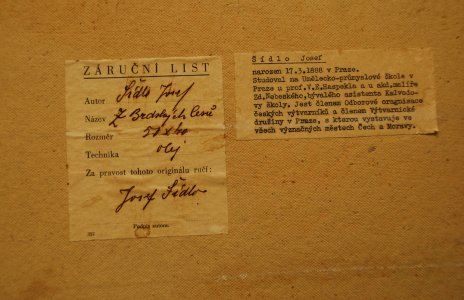 ZÁRUČNÍ LIST
Autor Šídlo Josef
Název Z Brdských lesů
Rozměr
Technika olej
Za pravost tohoto originálu ručí:
Josef Šídlo
Podpis autora.
Šídlo Josef
narozen 17.3.1888 v Praze.
Studoval na Umělecko-průmyslové škole v
Praze u prof.V.E.Haepekla a u akd.malíře
Zd.Nebeského,bývalého asistenta Kalvodo-
vy školy. Jest členem Odborové oragnisace
českých výtvarníků a členem Výtvarnické
družiny v Praze, s kterou vystavuje ve
všech význačných městech Čech a Moravy.